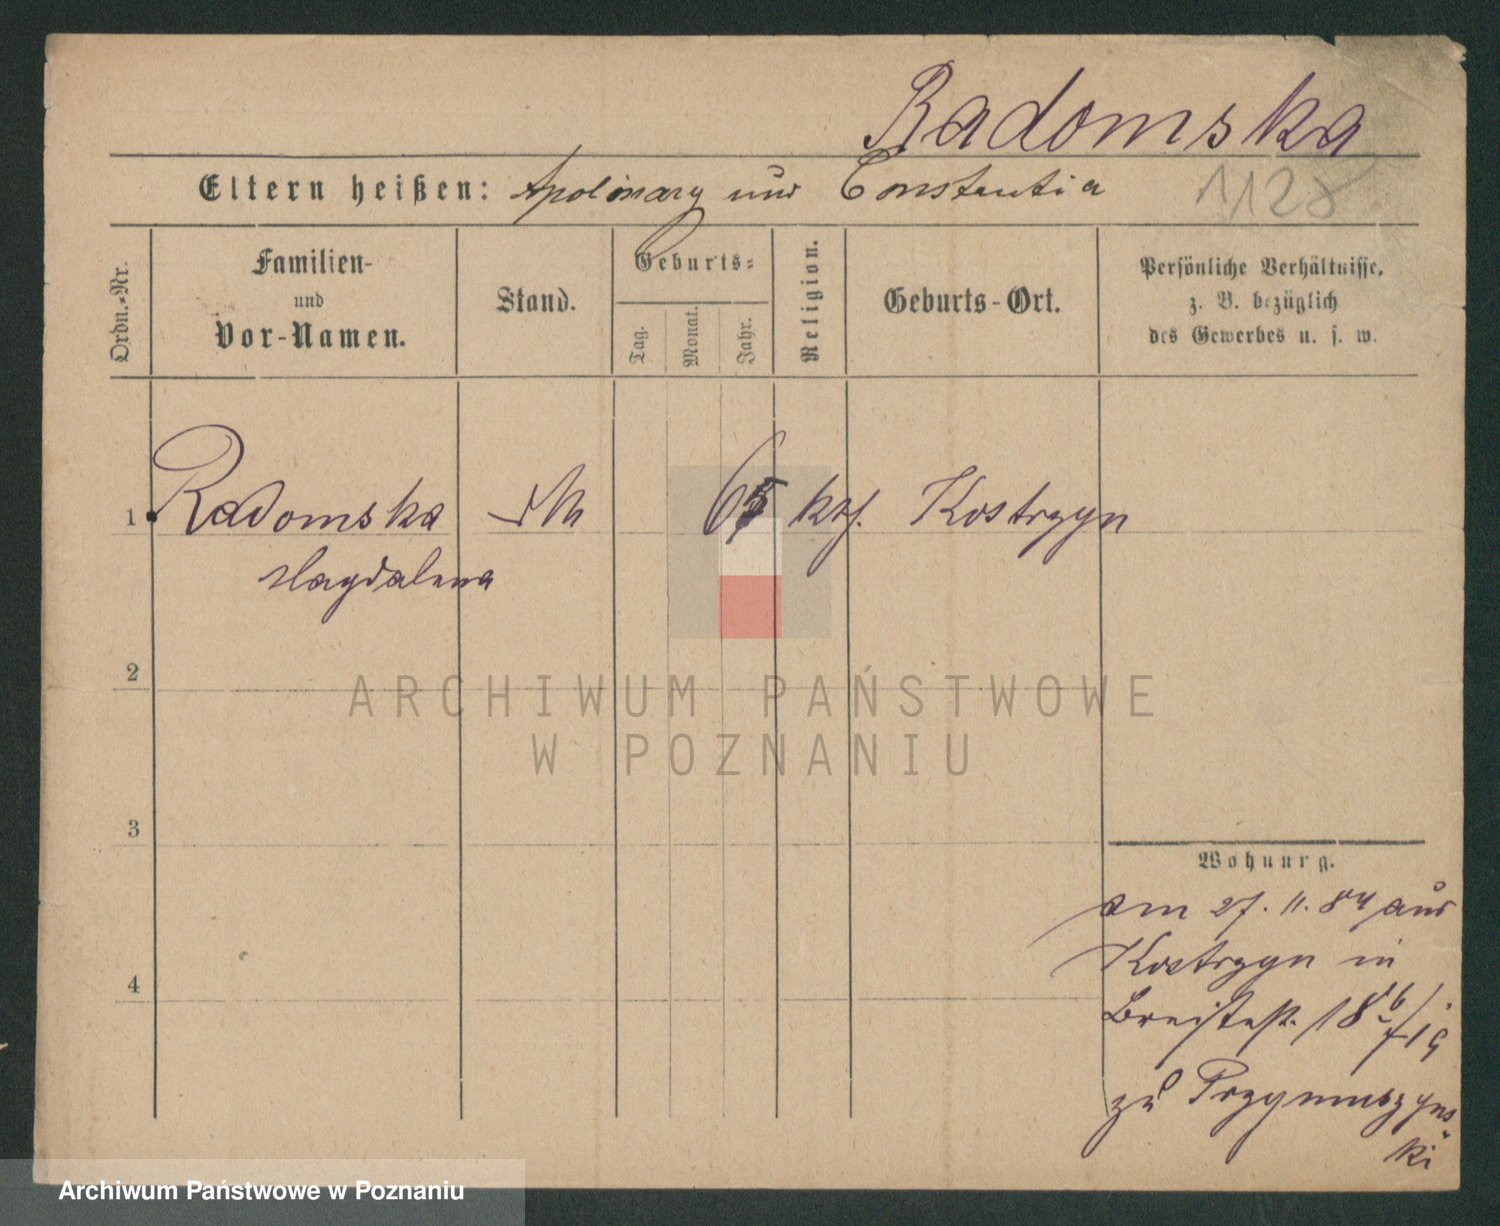 Radomska
Eltern heißen: Apolinary und Constantia
1128
Ordn.-Nr.
Familien-
und
Vor-Namen.
Stand.
Geburts-
Tag.
Monat.
Jahr.
Religion.
Geburts-Ort.
Persönliche Verhältnisse,
z. B. bezüglich
des Gewerbes u. s. w.
1 Radomska 65 kth. Kostrzyn
Magdalena
2
ARCHIWUM PAŃSTWOWE
W POZNANIU
3
Wohnung.
am 27. 11. 84 aus
Kostrzyn in
Breitestr. 18
zu Przymuszyns
ki
4
Archiwum Państwowe w Poznaniu